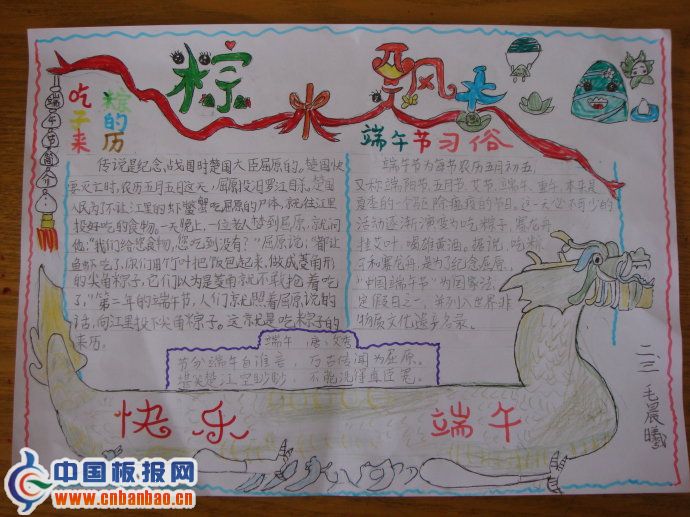 粽米飘香
端午节简介
吃粽子的来历
端午节习俗
传说是纪念战国时楚国大臣屈原的。楚国快
要灭亡时，农历五月五日这天，屈原投汨罗江自杀，楚国
人民为了不让江里的虾蟹蟹吃屈原的尸体，就往江里
投好吃的食物。一天晚上，一位老人梦到屈原，就问
他："我们给您食物，您吃到没有？"屈原说："都让
鱼虾吃了，你们用竹叶把饭包起来，做成菱角形
的尖角粽子，它们以为是菱角就不敢抢着吃
了。"第二年的端午节，人们就照着屈原说的
话，向江里投下尖角粽子。这就是吃粽子的
来历。
端午节为每年农历五月初五，
又称端阳节、五月节、艾节、端午、重午，本来是
夏季的一个驱除瘟疫的节日。
活动逐渐演变为吃粽子，赛龙舟，
挂艾叶，喝雄黄油。据说，吃粽
子和赛龙舟，是为了纪念屈原。
"中国端午节"为国家法
定假日之一，并列入世界非
物质文化遗产名录。
端午 唐：文秀
节分端午自谁言，万古传闻为屈原。
堪笑楚江空渺渺，不能洗得直臣冤。
快乐端午
二、三 毛晨曦
中国板报网
www.cnbanbao.cn